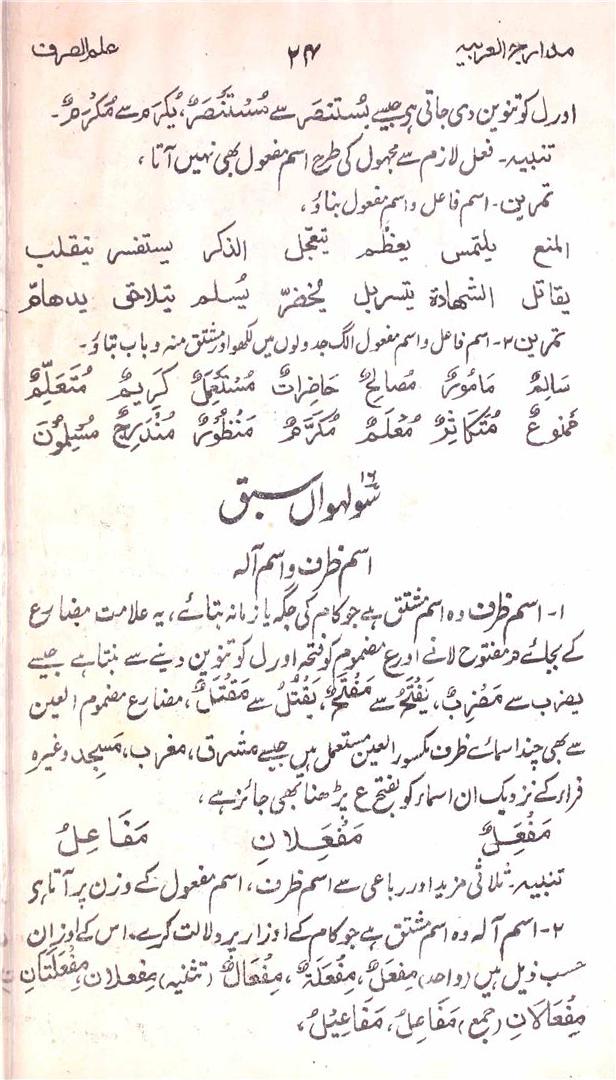 مدارجۃ العربیہ ۲۴ علم الصرف
اور ل کو تنوین دی جاتی ہی جیسے یُستنصَر سے مُسْتَنْصَرٌ، یُکرَم سے مُکْرَمٌ۔
تنبیہ۔ فعل لازم سے مجہول کی طرح اسم مفعول بھی نہیں آتا،
تمرین۔ اسم فاعل و اسم مفعول بناؤ،
المنع یلتمس یعظّم یتعجّل الذکر یستفسر ینقلب
یقاتل الشهادة یتسربل یُخضرّ یُسلم یتلاقی یدهامّ
تمرین ۲۔ اسم فاعل و اسم مفعول الگ جدولوں میں لکھو اور مشتق منہ و باب بتاؤ۔
سَالِمٌ مَامُورٌ مُصَالِحٌ حَاضِرَاتٌ مُسْتَعْمَلٌ کَرِیمٌ مُتَعَلِّمٌ
مَمْنوعٌ مُتَکَاثِرٌ مُعْلَمٌ مُکَرَّمٌ مَنْظُورٌ مُنْدَرِجٌ مُسْلِمُوْنَ
۱۶
سولہواں سبق
اسم ظرف و اسم آلہ
۱۔ اسم ظرف وہ اسم مشتق ہے جو کام کی جگہ یا زمانہ بتائے، یہ علامت مضارع
کے بجائے م مفتوح لانے اور ع مضموم کو فتحہ اور ل کو تنوین دینے سے بنتا ہے جیسے
یضرب سے مَضْرِبٌ، یَفْتَحُ سے مَفْتَحٌ، یَقْتُلُ سے مَقْتَلٌ، مضارع مضموم العین
سے بھی چند اسمائے ظرف مکسور العین مستعمل ہیں جیسے مشرق، مغرب، مَسْجِد وغیرہ
فراء کے نزدیک ان اسماء کو بفتح ع پڑھنا بھی جائز ہے،
مَفْعَِلٌ مَفْعَِلانِ مَفَاعِلُ
تنبیہ۔ ثلاثی مزید اور رباعی سے اسم ظرف، اسم مفعول کے وزن پر آتا ہی
۲۔ اسم آلہ وہ اسم مشتق ہے جو کام کے اوزار پر دلالت کرے۔ اس کے اوزان
حسب ذیل ہیں (واحد) مِفْعَلٌ، مِفْعَلَةٌ، مِفْعَالٌ (تثنیہ) مِفْعلان، مِفْعَلَتَانِ
مِفْعَالَانِ (جمع) مَفَاعِلُ، مَفَاعِیْلُ،